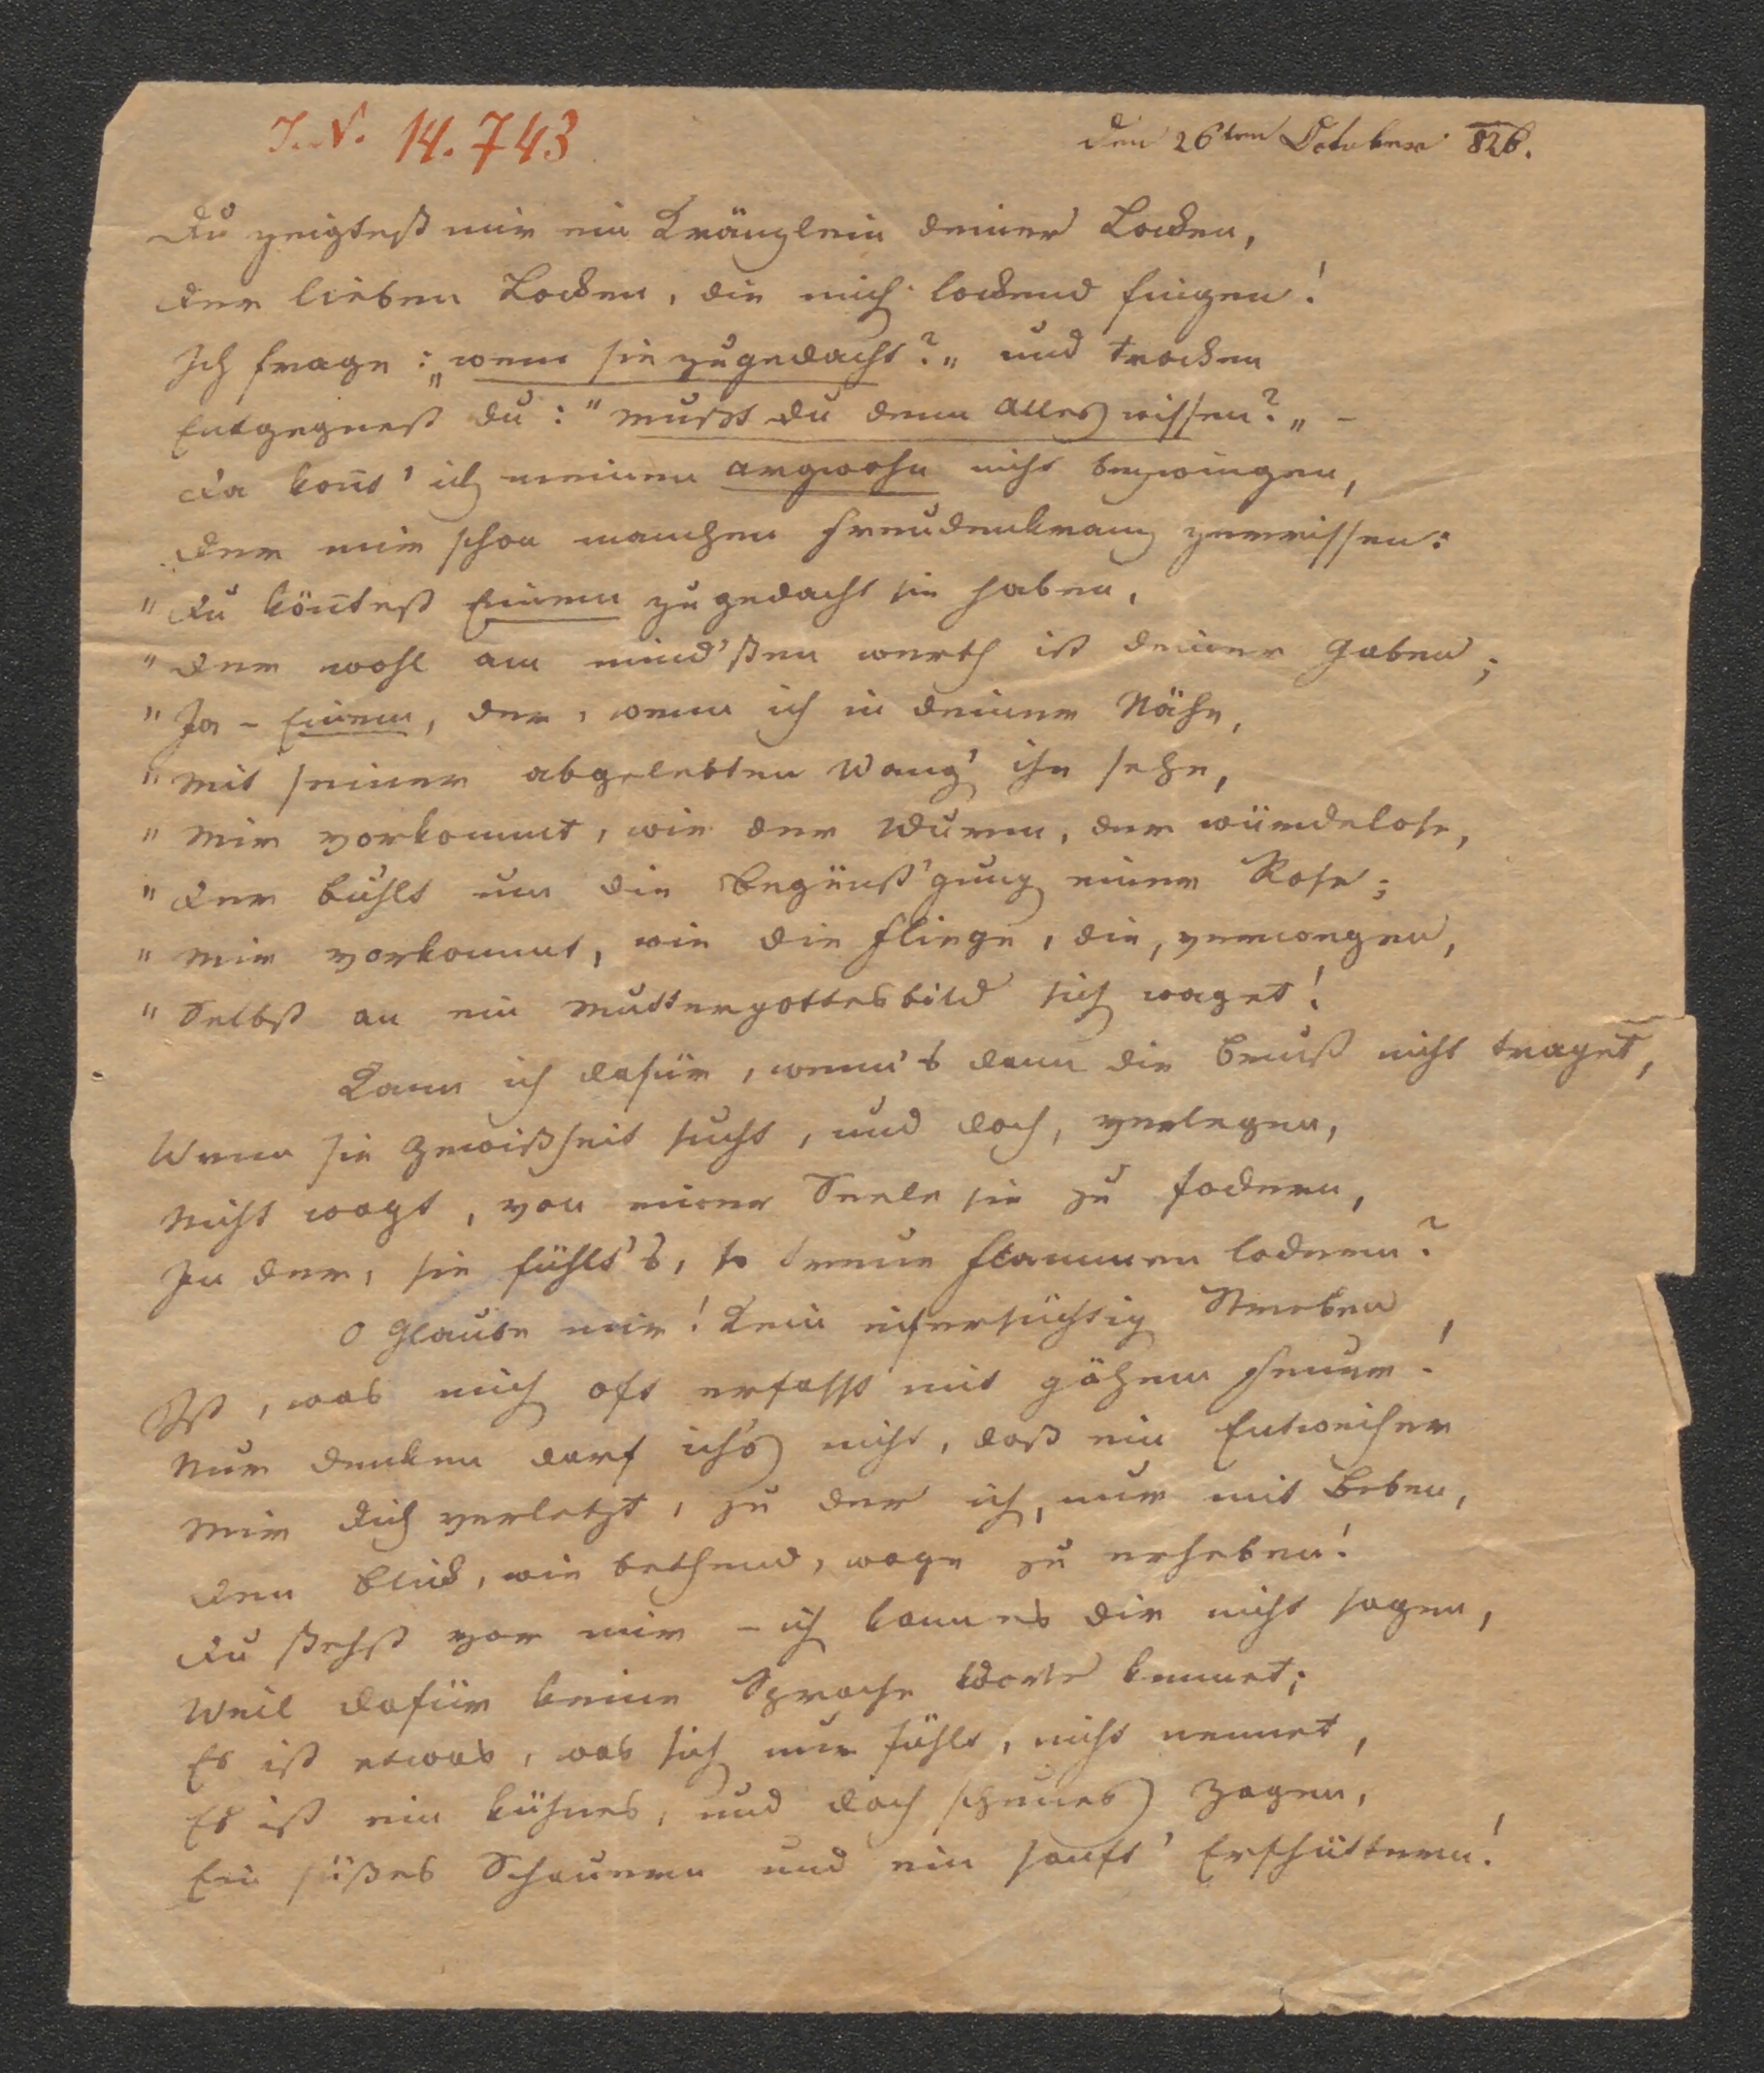 J. N. 14.743
den 26ten October 826.
Du zeigtest mir ein Kränzlein deiner Locken,
Der lieben Locken, die mich lockend fingen!
Ich frage: „wem sie zugedacht?„ und trocken
Entgegnest du: "mußt du denn alles wissen?„ –
Da kon̄t' ich meinen Argwohn nicht bezwingen,
Der mir schon manchen Freudenkranz zerrissen:
"Du kön̄test Einem zugedacht sie haben,
"Der wohl am mind'sten werth ist deiner Gaben;
"Ja – Einem, der, wenn ich in deiner Nähe,
"Mit seiner abgelebten Wang' ihn sehe,
"Mir vorkommt, wie der Wurm, der würdelose,
"Der buhlt um die Begünst'gung einer Rose;
"Mir vorkommt, wie die Fliege, die, verwegen,
"Selbst an ein Muttergottesbild sich waget!
Kann ich dafür, wenn's dann die Brust nicht traget,
Wenn sie Gewißheit sucht, und doch, verlegen,
Nicht wagt, von einer Seele sie zu fodern,
In der, sie fühlt's, so treue Flammen lodern?
O Glaube mir! Kein eifersüchtig Streben
Ist, was mich oft erfasst mit gähem Feuer!
Nur denken darf ich's nicht, daß ein Entweiher
Mir dich verletzt, zu der ich, nur mit Beben,
Den Blick, wie bethend, wage zu erheben!
Du stehst vor mir – ich kann es dir nicht sagen,
Weil dafür keine Sprache Worte kennet;
Es ist etwas, was sich nur fühlt, nicht nennet,
Es ist ein kühnes, und doch scheues Zagen,
Ein süßes Schauern und ein sanft' Erschüttern!